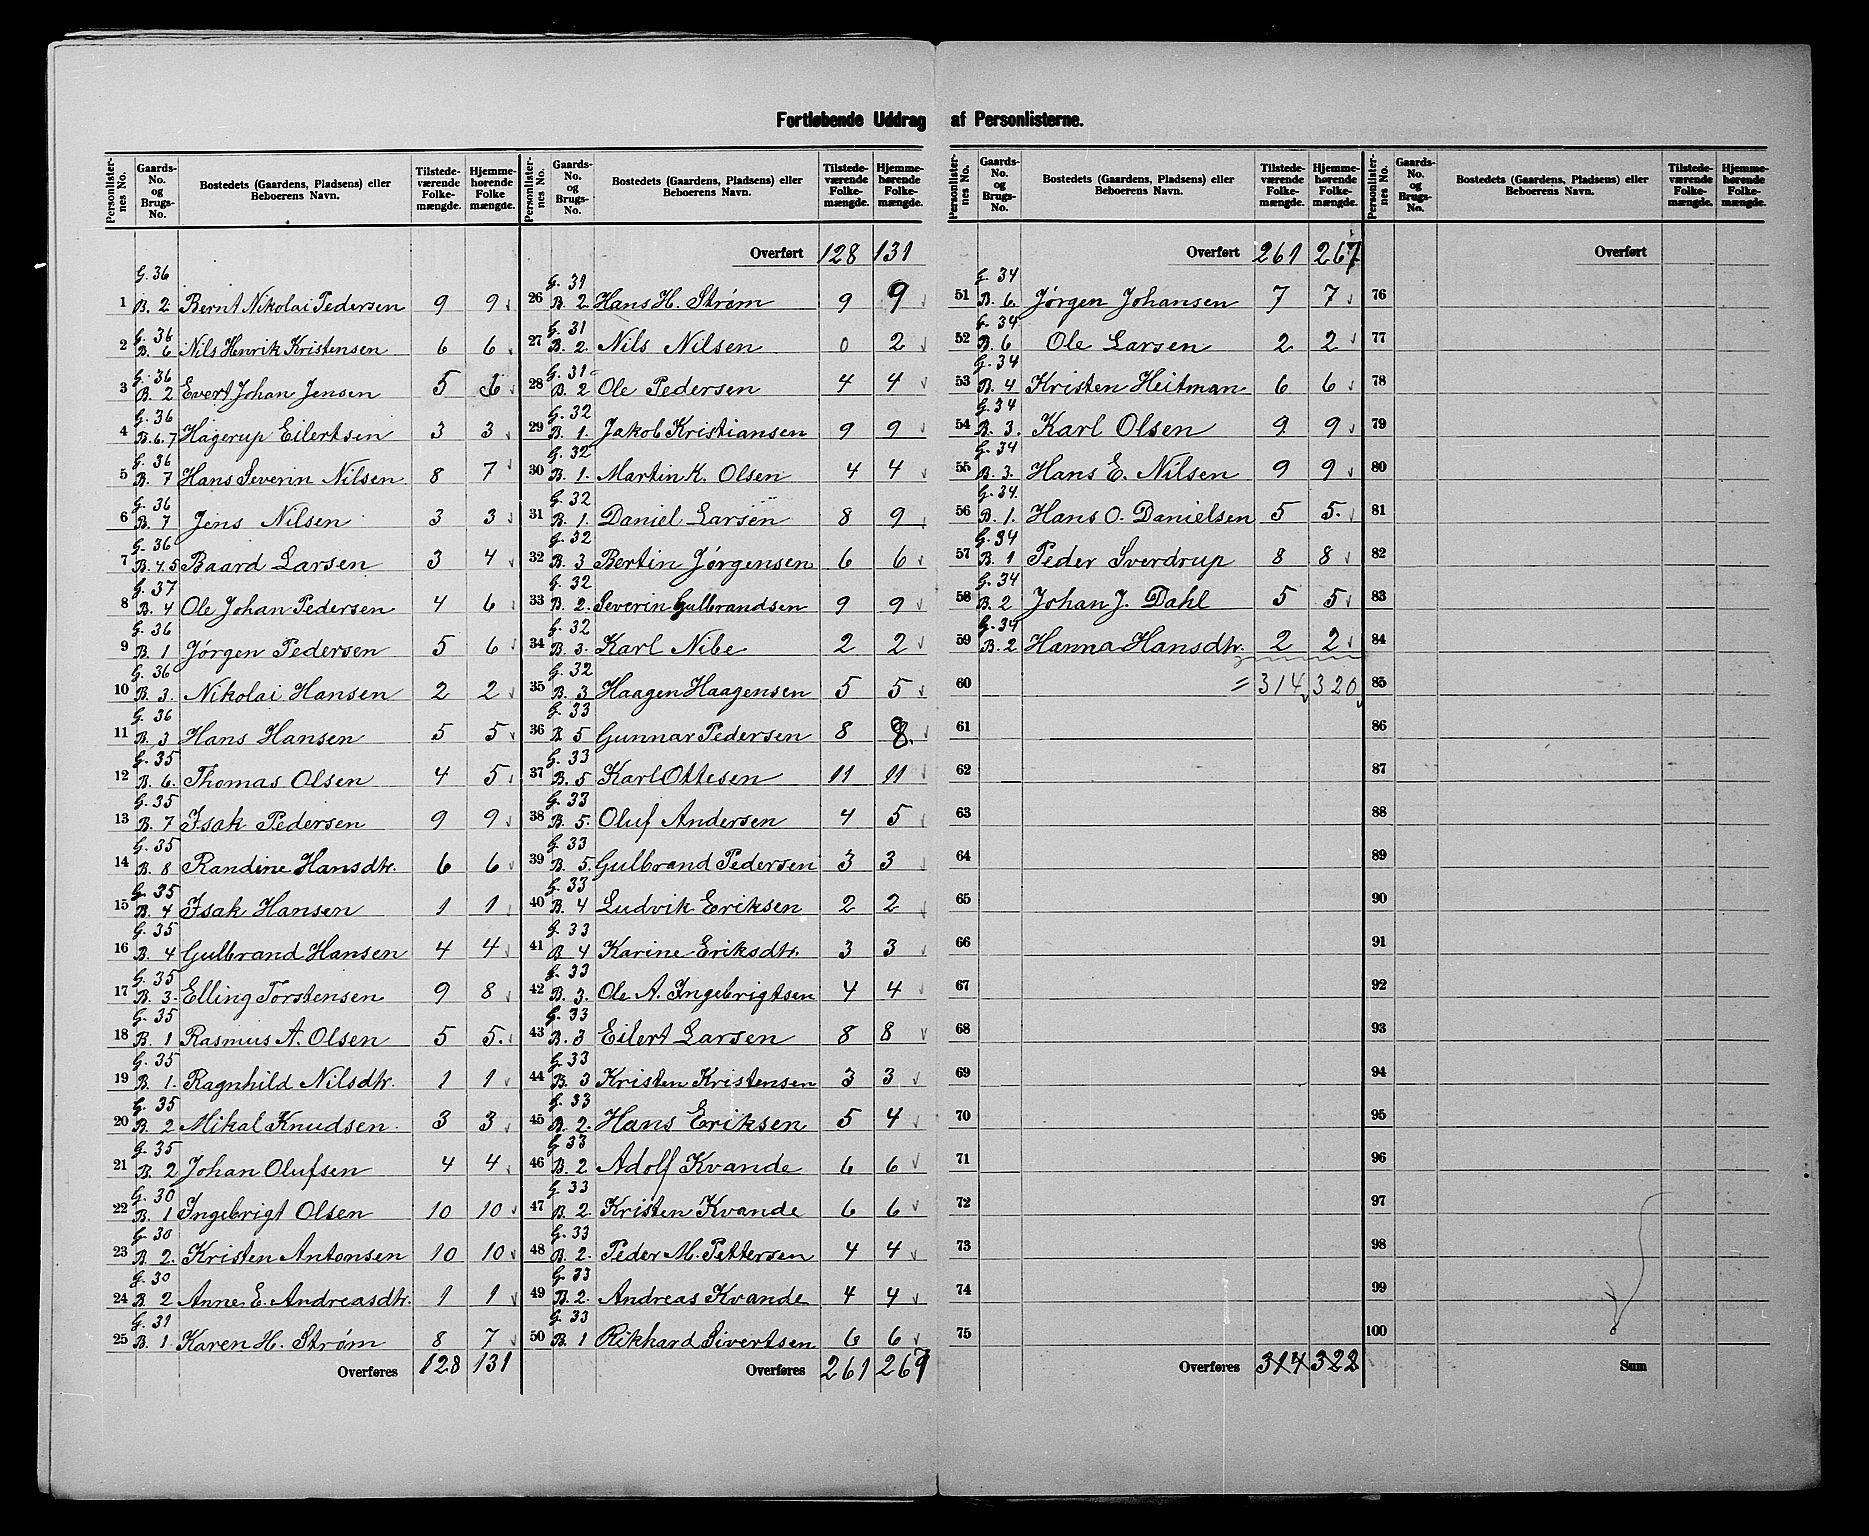 Fortløbende Uddrag af Personlisterne.
Personlister-nes No. | Gaards-No. og Brugs-No. | Bostedets (Gaardens, Pladsens) eller Beboerens Navn. | Tilstede-værende Folke-mængde. | Hjemme-hørende Folke mængde.
1 G. 36 B. 2 Bernt Nikolai Pedersen 9 9
2 G. 36 B. 6 Nils Henrik Kristensen 6 6
3 G. 36 B. 2 Evert Johan Jensen 5 6
4 G. 36 B. 6.7 Hagerup Eilertsen 3 3
5 G. 36 B. 7 Hans Severin Nilsen 8 7
6 G. 36 B. 7 Jens Nilsen 3 3
7 G. 36 B. 4.5 Baard Larsen 3 4
8 G. 37 B. 4 Ole Johan Pedersen 4 6
9 G. 36 B. 1 Jørgen Pedersen 5 6
10 G. 36 B. 3. Nikolai Hansen 2 2
11 G. 36 B. 3 Hans Hansen 5 5
12 G. 35 B. 6. Thomas Olsen 4 5
13 G. 35 B. 7 Isak Pedersen 9 9
14 G. 35 B. 8 Randine Hansdtr. 6 6
15 G. 35 B. 4 Isak Hansen 1 1
16 G. 35 B. 4 Gulbrand Hansen 4 4
17 G. 35 B. 3. Elling Torstensen 9 8
18 G. 35 B. 1 Rasmus A. Olsen 5 5.
19 G. 35 B. 1. Ragnhild Nilsdtr. 1 1
20 G. 35 B. 2 Mikal Knudsen. 3 3
21 G. 35 B. 2 Johan Olufsen 4 4
22 G. 30 B. 1 Ingebrigt Olsen 10 10
23 G. 30 B. 2. Kristen Antonsen 10 10
24 G. 30 B. 2 Anne E. Andreasdtr. 1 1
25 G. 31 B. 1. Karen H. Strøm 8 7
Overføres 128 131
Personlister-nes No. | Gaards-No. og Brugs-No. | Bostedets (Gaardens, Pladsens) eller Beboerens Navn. | Tilstede-værende Folke-mængde. | Hjemme-hørende Folke-mængde.
Overført 128 131
26 G. 31 B. 2 Hans H. Strøm 9 9
27 G. 31 B. 2. Nils Nilsen 0 2
28 G. 31 B. 2 Ole Pedersen 4 4
29 G. 32 B. 1. Jakob Kristiansen 9 9
30 G. 32 B. 1. Martin K. Olsen 4 4
31 G. 32 B. 1. Daniel Larsen 8 9
32 G. 32 B. 3 Bertin Jørgensen 6 6
33 G. 32 B. 2. Severin Gulbrandsen 9 9
34 G. 32 B. 3. Karl Nibe 2 2
35 G. 32 B. 3 Haagen Haagensen 5 5
36 G. 33 B 5 Gunnar Pedersen 8 8
37 G. 33 B. 5 Karl Ottesen 11 11
38 G. 33 B. 5. Oluf Andersen 4 5
39 G. 33 B. 5. Gulbrand Pedersen 3 3
40 G. 33 B. 4 Ludvik Eriksen 2 2
41 G. 33 B 4 Karine Eriksdtr. 3 3
42 G. 33 B. 3. Ole A. Ingebrigtsen 4 4
43 G. 33 B. 3 Eilert Larsen 8 8
44 G. 33 B. 3 Kristen Kristensen 3 3
45 G. 33 B. 2. Hans Eriksen 5 4
46 G. 33 B. 2 Adolf Kvande 6 6
47 G. 33 B. 2. Kristen Kvande 6 6
48 G. 33 B. 2. Peder M. Pettersen 4 4
49 G. 33 B. 2. Andreas Kvande 4 4
50 G. 33 B. 1 Rikhard Sivertsen 6 6
Overføres 261 267
Personlister-nes No. | Gaards-No. og Brugs-No. | Bostedets (Gaardens, Pladsens) eller Beboerens Navn. | Tilstede-værende Folke-mængde. | Hjemme-hørende Folke-mængde.
Overført 261 267
51 G. 34 B. 6. Jørgen Johansen 7 7
52 G. 34 B. 6 Ole Larsen 2 2
53 G. 34 B. 4 Kristen Heitman 6 6
54 G. 34 B. 3. Karl Olsen 9 9
55 G. 34 B. 3. Hans E. Nilsen 9 9
56 G. 34. B. 1. Hans O. Danielsen 5 5.
57 G. 34 B. 1 Peder Sverdrup 8 8
58 G. 34 B. 2 Johan J. Dahl 5 5
59 G. 34 B. 2 Hanna Hansdtr. 2 2
60 = 314 320
61
62
63
64
65
66
67
68
69
70
71
72
73
74
75
Overføres 314 328
Personlister-nes No. | Gaards-No. og Brugs-No. | Bostedets (Gaardens, Pladsens) eller Beboerens Navn. | Tilstede-værende Folke-mængde. | Hjemme-hørende Folke-mængde.
Overført
76
77
78
79
80
81
82
83
84
85
86
87
88
89
90
91
92
93
94
95
96
97
98
99
100
Sum